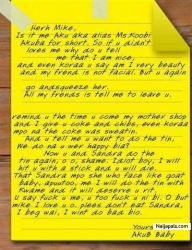 Herh Mike,
Is it me Aku aka alias Ms.Koobi
Akuba for short. So if u didn't
loves me why do u tell
me that I am nice,
and even Kwaa u say am I very beauty
and my frend is not facial. But u again
go andsqueeze her.
All my frends is tell me to leave u.
remind u the time u come my mother shop
and I give u coke and chibs, even Korda
mpo na the coke was sweatin.
And u tell me u want to do the tin,
We do na u wer happy bia?
Now u and Sandra do the
tin again, o o, shame. Idiot boy, I will
hit u with a stick and u will die.
That Sandra mpo she who face like goat
baby, apuutoo, me I will do the tin with
Kwame and it will deserve u rit.
U say fuck u me, u too fuck u ni bi. O but
mike I love u o, plees don't eat Sandra,
I beg wai, I wint do bad bio.
Yours
AkuB Baby
Naijapals.com